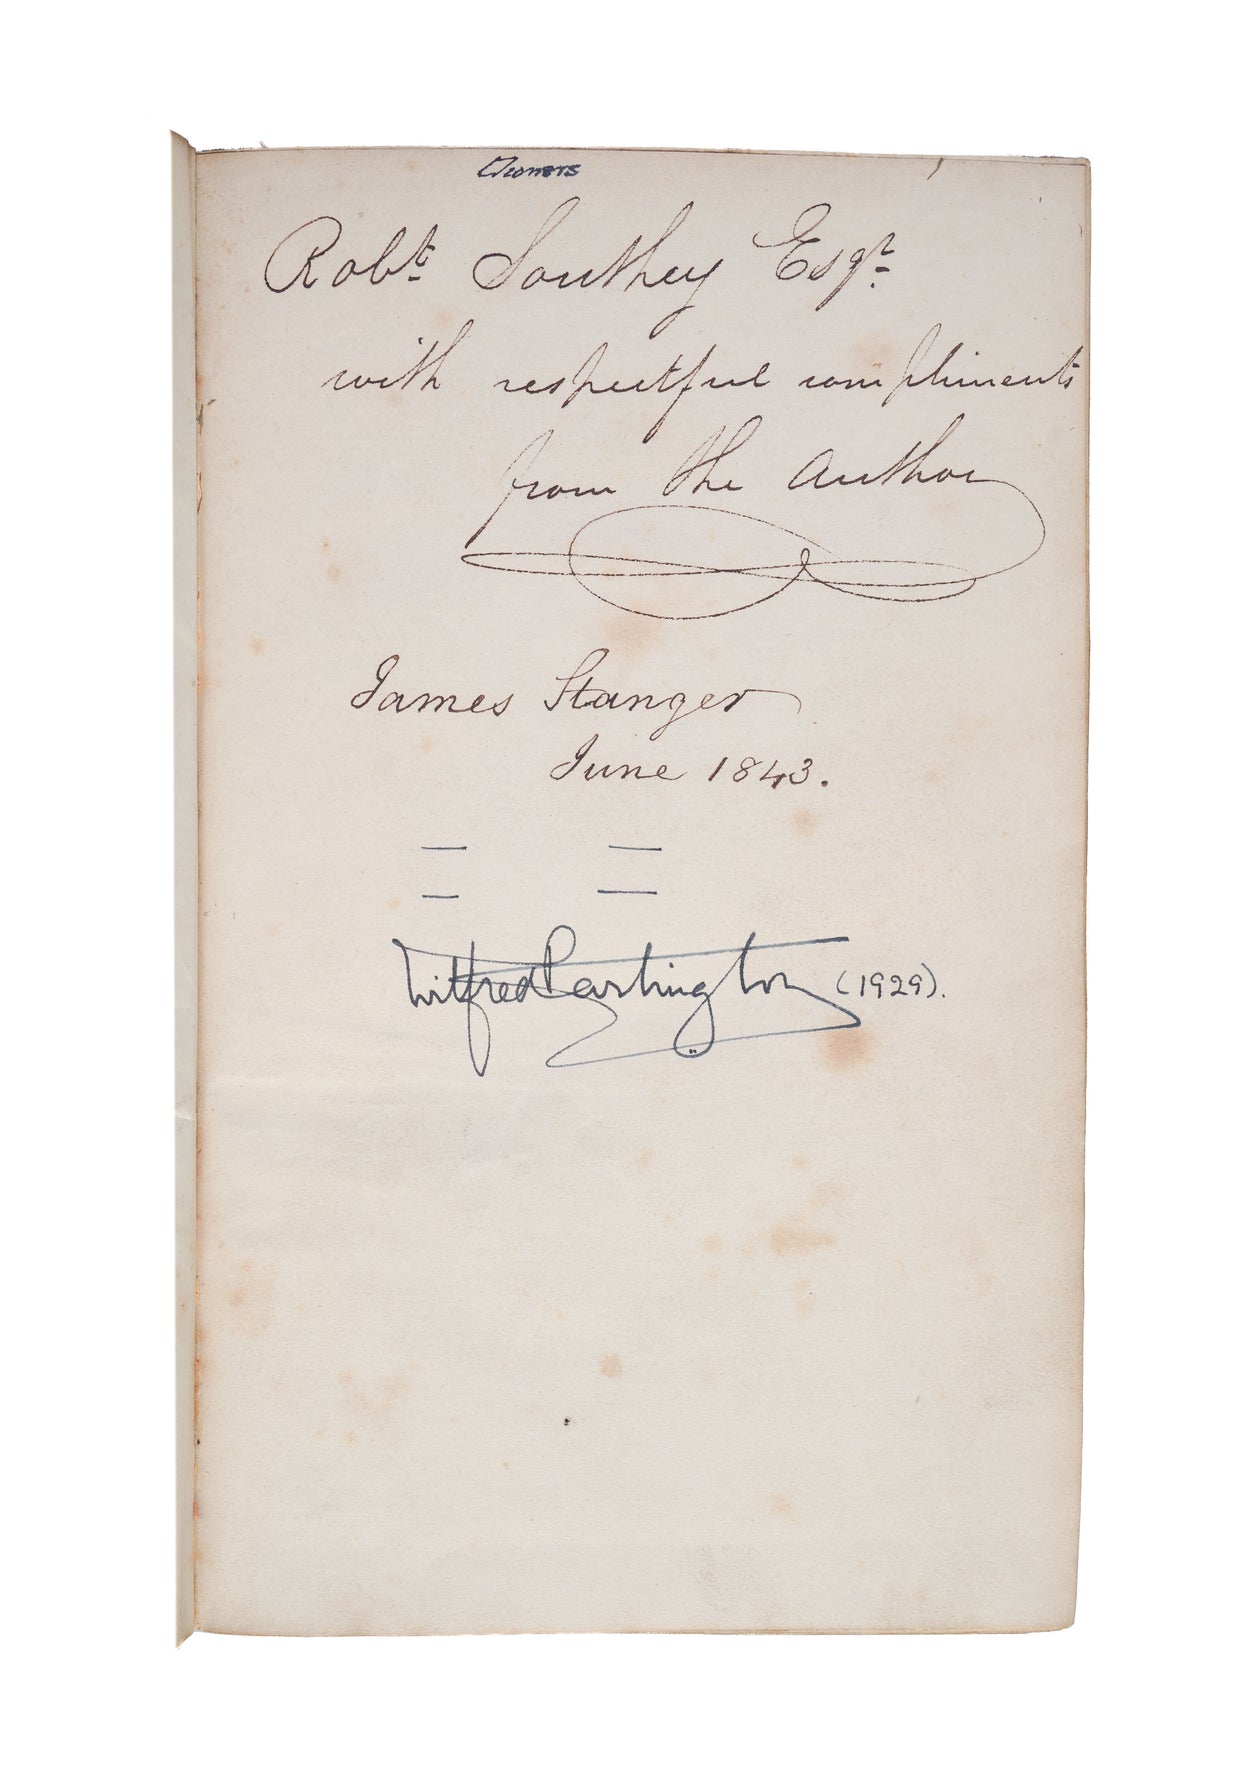 Owners
Robt. Southey Esqr.
with respectful compliments
from the Author
James Stanger
June 1843.
Wilfred Partington (1929).